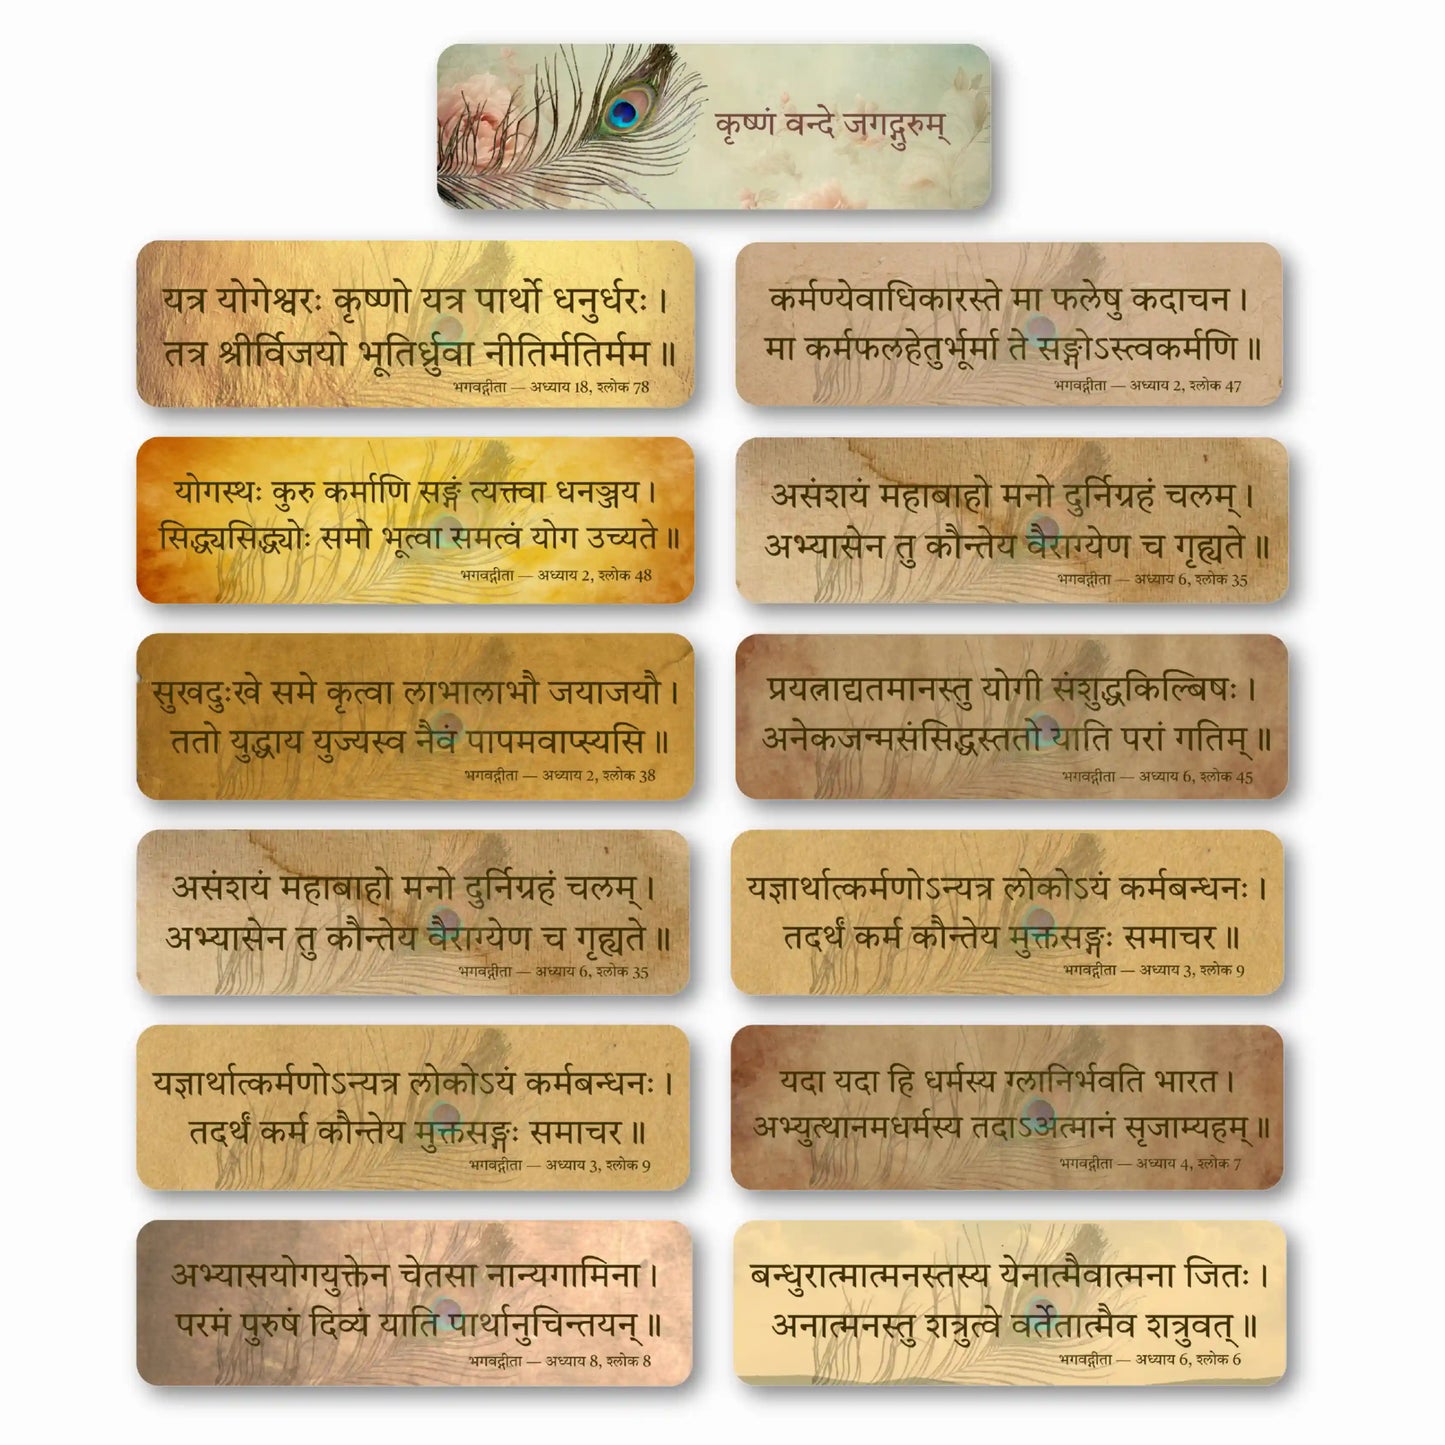 कृष्णं वन्दे जगद्गुरुम्
यत्र योगेश्वरः कृष्णो यत्र पार्थो धनुर्धरः ।
तत्र श्रीर्विजयो भूतिर्ध्रुवा नीतिर्मतिर्मम ॥
भगवद्गीता — अध्याय 18, श्लोक 78
कर्मण्येवाधिकारस्ते मा फलेषु कदाचन ।
मा कर्मफलहेतुर्भूर्मा ते सङ्गोऽस्त्वकर्मणि ॥
भगवद्गीता — अध्याय 2, श्लोक 47
योगस्थः कुरु कर्माणि सङ्गं त्यक्त्वा धनञ्जय ।
सिद्ध्यसिद्ध्योः समो भूत्वा समत्वं योग उच्यते ॥
भगवद्गीता — अध्याय 2, श्लोक 48
असंशयं महाबाहो मनो दुर्निग्रहं चलम् ।
अभ्यासेन तु कौन्तेय वैराग्येण च गृह्यते ॥
भगवद्गीता — अध्याय 6, श्लोक 35
सुखदुःखे समे कृत्वा लाभालाभौ जयाजयौ ।
ततो युद्धाय युज्यस्व नैवं पापमवाप्स्यसि ॥
भगवद्गीता — अध्याय 2, श्लोक 38
प्रयत्नाद्यतमानस्तु योगी संशुद्धकिल्बिषः ।
अनेकजन्मसंसिद्धस्ततो याति परां गतिम् ॥
भगवद्गीता — अध्याय 6, श्लोक 45
असंशयं महाबाहो मनो दुर्निग्रहं चलम् ।
अभ्यासेन तु कौन्तेय वैराग्येण च गृह्यते ॥
भगवद्गीता — अध्याय 6, श्लोक 35
यज्ञार्थात्कर्मणोऽन्यत्र लोकोऽयं कर्मबन्धनः ।
तदर्थं कर्म कौन्तेय मुक्तसङ्गः समाचर ॥
भगवद्गीता — अध्याय 3, श्लोक 9
यज्ञार्थात्कर्मणोऽन्यत्र लोकोऽयं कर्मबन्धनः ।
तदर्थं कर्म कौन्तेय मुक्तसङ्गः समाचर ॥
भगवद्गीता — अध्याय 3, श्लोक 9
यदा यदा हि धर्मस्य ग्लानिर्भवति भारत ।
अभ्युत्थानमधर्मस्य तदाऽअत्मानं सृजाम्यहम् ॥
भगवद्गीता — अध्याय 4, श्लोक 7
अभ्यासयोगयुक्तेन चेतसा नान्यगामिना ।
परमं पुरुषं दिव्यं याति पार्थानुचिन्तयन् ॥
भगवद्गीता — अध्याय 8, श्लोक 8
बन्धुरात्मात्मनस्तस्य येनात्मैवात्मना जितः ।
अनात्मनस्तु शत्रुत्वे वर्तेतात्मैव शत्रुवत् ॥
भगवद्गीता — अध्याय 6, श्लोक 6